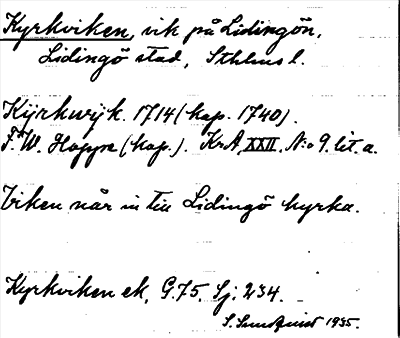 Kyrkviken, vik på Lidingön,
Lidingö stad, Sthlms l.
Kijrkwijk. 1714 (kop. 1740).
F. W. Hoppe (kop.). KrA, XXII, N:o 9. lit. a.
Viken når in till Lidingö kyrka.
Kyrkviken ek, G.75, Sj. 234.
S. Sundquist 1935.